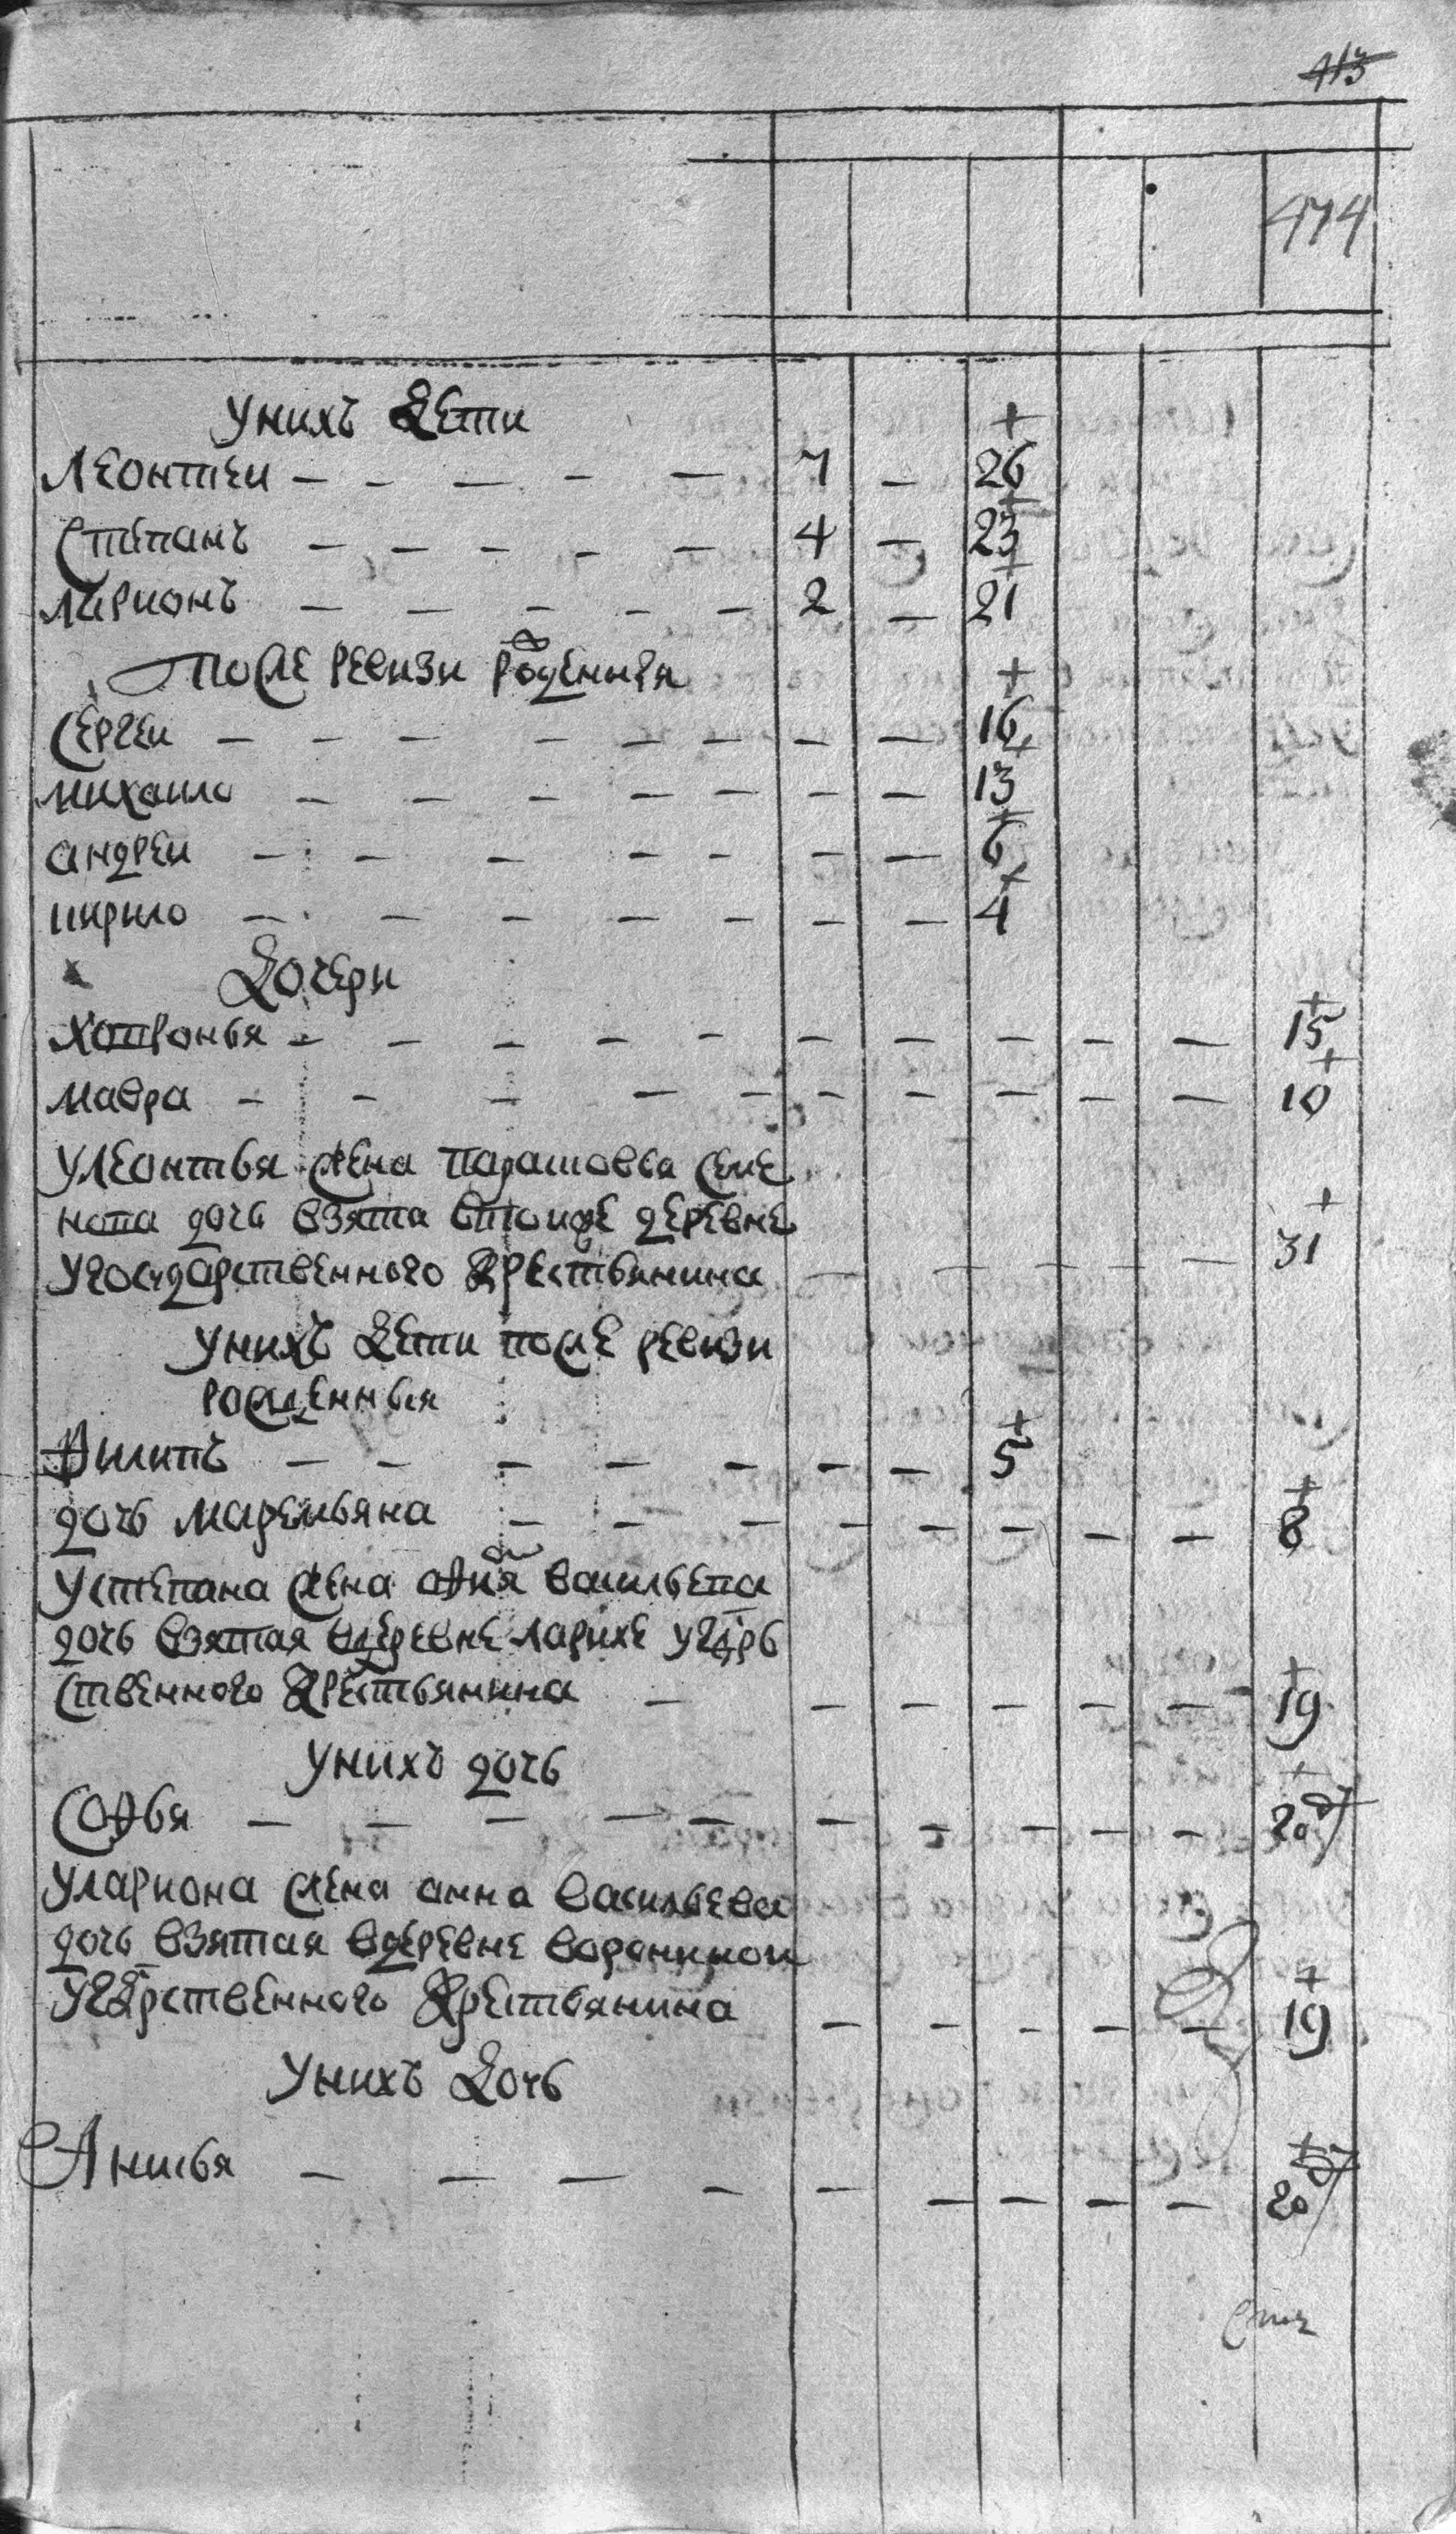 413
474
У нихъ дети
Леонтеи — — — — — 7 — 26
Степанъ — — — — — 4 — 23
Ларионъ — — — — — 2 — 21
после ревизи рожденныя
Сергеи — — — — — — — — 16
михаило — — — — — — — 13
андреи — — — — — — — 6
кирило — — — — — — — 4
Дочери
Хопронья — — — — — — — — — — 15
мавра — — — — — — — — — — 10
Улеонтья жена парасковья семе
нова дочь взята втоиже деревне
Угосударственного крестьянина — — — — — 31
Унихъ дети после ревизи
рожденныя
Филипъ — — — — — — — 5
дочь маремьяна — — — — — — — — 8
Устепана жена Васильева
дочь взятая вдеревне ларихе угдрь
ственного крестьянина — — — — — — 19
Унихъ дочь
Софья — — — — — — — — — — 20
Улариона жена анна васильева
дочь взятая вдеревне воронинои
Угдрственного крестьянина — — — — — 19
Унихъ дочь
Анисья — — — — — — — — — 20